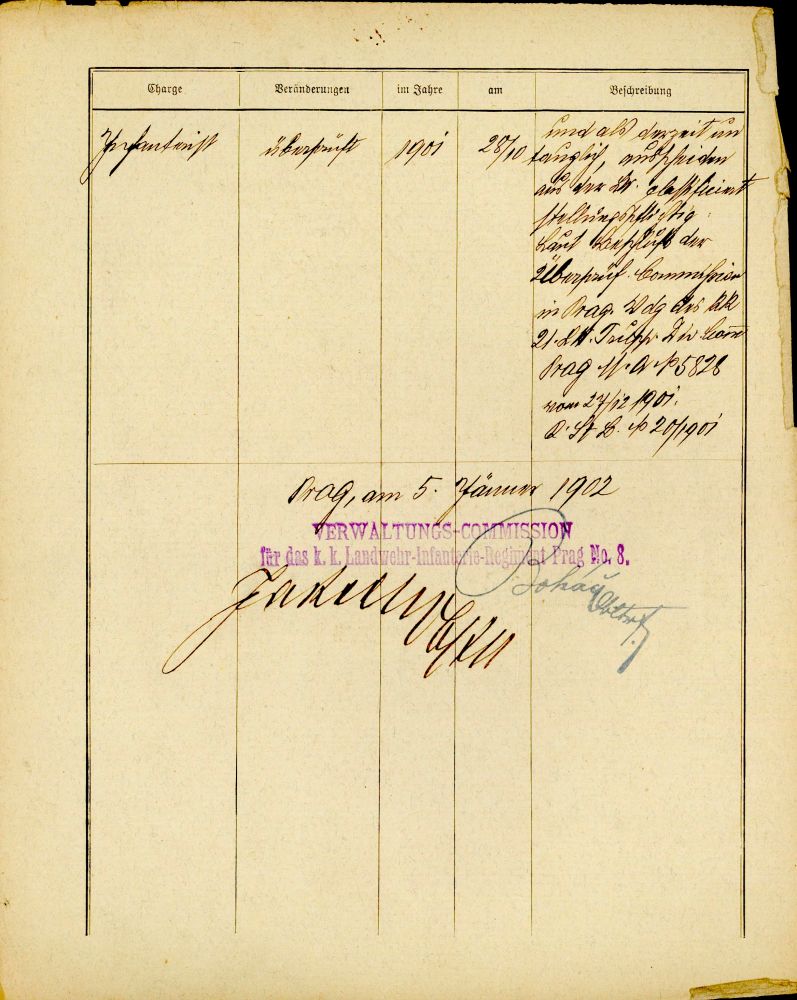 Charge Veränderungen im Jahre am Beschreibung
Infanterist überprüft 1901 28/10 und als derzeit un
tauglich, ausscheiden
aus der Lw. classificirt
stellungspflichtig.
Laut Beschluß der
Überprüf. Commission
in Prag. Vdg des kk
21. LW. Trupp. Div. Com̄
Prag M. A. № 5828
vom 27/12 1901.
St B. № 20/1901
Prag, am 5. Jänner 1902
VERWALTUNGS-COMMISSION
für das k. k. Landwehr-Infanterie-Regiment Prag No. 8.